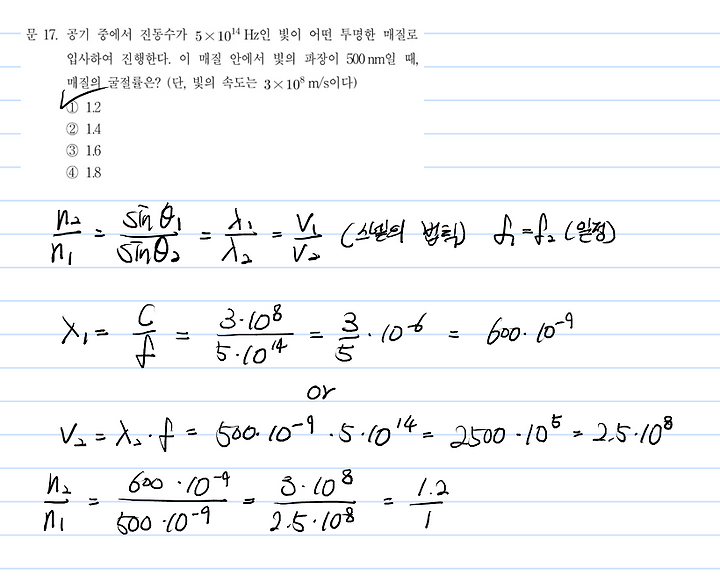 문 17. 공기 중에서 진동수가 5×10¹⁴ Hz인 빛이 어떤 투명한 매질로
입사하여 진행한다. 이 매질 안에서 빛의 파장이 500 nm일 때,
매질의 굴절률은? (단, 빛의 속도는 3×10⁸ m/s이다)
① 1.2
② 1.4
③ 1.6
④ 1.8
n₂/n₁ = sinθ₁/sinθ₂ = λ₁/λ₂ = V₁/V₂ (스넬의 법칙) f₁=f₂ (일정)
λ₁ = C/f = 3·10⁸/5·10¹⁴ = 3/5 · 10⁻⁶ = 600·10⁻⁹
or
V₂ = λ₂·f = 500·10⁻⁹ · 5·10¹⁴ = 2500·10⁵ = 2.5·10⁸
n₂/n₁ = 600·10⁻⁹/500·10⁻⁹ = 3·10⁸/2.5·10⁸ = 1.2/1